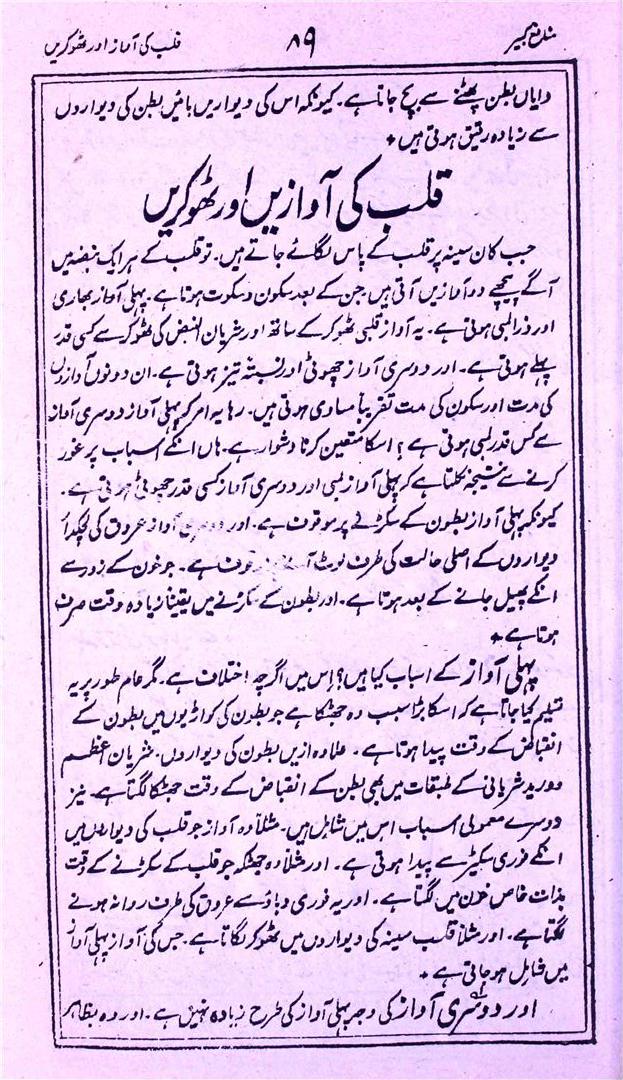 منافع کبیر ۸۹ قلب کی آواز اور ٹھوکریں
دایاں بطن پھٹنے سے بچ جاتا ہے۔ کیونکہ اس کی دیواریں بائیں بطن کی دیواروں
سے زیادہ رقیق ہوتی ہیں ٭
قلب کی آوازیں اور ٹھوکریں
جب کان سینہ پر قلب کے پاس لگائے جاتے ہیں۔ تو قلب کے ہر ایک نبضہ میں
آگے پیچھے دو آوازیں آتی ہیں جن کے بعد سکون و سکوت ہوتا ہے۔ پہلی آواز بھاری
اور ذرا لمبی ہوتی ہے۔ یہ آواز قلبی ٹھوکر کے ساتھ اور شریان النبض کی ٹھوکر سے کسی قدر
پہلے ہوتی ہے۔ اور دوسری آواز چھوٹی اور نسبتہً تیز ہوتی ہے۔ ان دونوں آوازوں
کی مدت اور سکون کی مدت تقریباً مساوی ہوتی ہیں۔ رہا یہ امر کہ پہلی آواز دوسری آواز
سے کس قدر لمبی ہوتی ہے؟ اسکا متعین کرنا دشوار ہے۔ ہاں انکے اسباب پر غور
کرنے سے نتیجہ نکلتا ہے کہ پہلی آواز لمبی اور دوسری آواز کسی قدر چھوٹی ہوتی ہے۔
کیونکہ پہلی آواز بطون کے سکڑنے پر موقوف ہے۔ اور دوسری آواز عروق کی لچکدار
دیواروں کے اصلی حالت کی طرف لوٹ آنے پر موقوف ہے۔ جو خون کے زور سے
انکے پھیل جانے کے بعد ہوتا ہے۔ اور بطون کے سکڑنے میں یقیناً زیادہ وقت صرف
ہوتا ہے ٭
پہلی آواز کے اسباب کیا ہیں؟ اس میں اگرچہ اختلاف ہے۔ مگر عام طور پر یہ
تسلیم کیا جاتا ہے کہ اسکا بڑا سبب وہ جھٹکا ہے جو بطون کی کواڑیوں میں بطون کے
انقباض کے وقت پیدا ہوتا ہے۔ علاوہ ازیں بطون کی دیواروں۔ شریان اعظم
و ورید شریانی کے طبقات میں بھی بطن کے انقباض کے وقت جھٹکا لگتا ہے۔ نیز
دوسرے معمولی اسباب اس میں شامل ہیں۔ مثلاً وہ آواز جو قلب کی دیواروں میں
انکے فوری سکیڑ سے پیدا ہوتی ہے۔ اور مثلاً وہ جھٹکہ جو قلب کے سکڑنے کے وقت
بذات خاص خون میں لگتا ہے۔ اور یہ فوری دباؤ سے عروق کی طرف روانہ ہونے
لگتا ہے۔ اور مثلاً قلب سینہ کی دیواروں میں ٹھوکر لگاتا ہے۔ جس کی آواز پہلی آواز
میں شامل ہو جاتی ہے ٭
اور دوسری آواز کی وجہ پہلی آواز کی طرح زیادہ نہیں ہے۔ اور وہ بظاہر